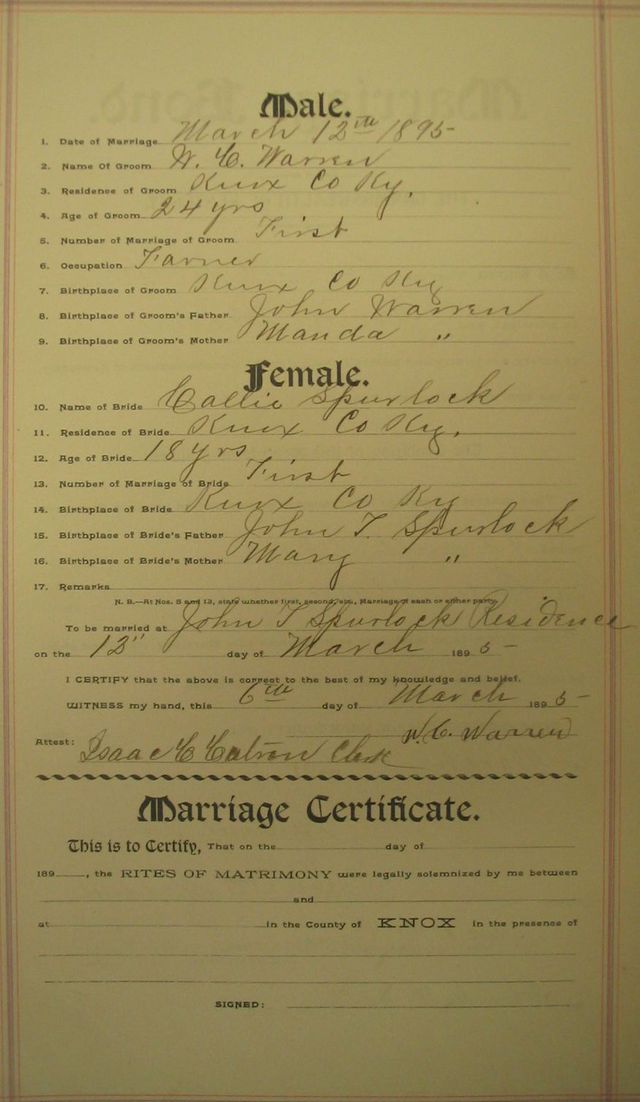 Male.
1. Date of Marriage March 12th 1895
2. Name Of Groom W. C. Warren
3. Residence of Groom Knox Co Ky.
4. Age of Groom 24 yrs
5. Number of Marriage of Groom First
6. Occupation Farmer
7. Birthplace of Groom Knox Co Ky
8. Birthplace of Groom's Father John Warren
9. Birthplace of Groom's Mother Manda "
Female.
10. Name of Bride Callie Spurlock
11. Residence of Bride Knox Co Ky.
12. Age of Bride 18 yrs
13. Number of Marriage of Bride First
14. Birthplace of Bride Knox Co Ky
15. Birthplace of Bride's Father John T. Spurlock
16. Birthplace of Bride's Mother Mary "
17. Remarks
N. B.—At Nos. 5 and 13, state whether first, second, etc., Marriage of each or either party.
To be married at John T Spurlock Residence
on the 12" day of March 1895
I CERTIFY that the above is correct to the best of my knowledge and belief.
WITNESS my hand, this 6th day of March 1895
W. C. Warren
Attest: Isaac C Catron Clerk
Marriage Certificate.
This is to Certify, That on the day of
189 , the RITES OF MATRIMONY were legally solemnized by me between
and
at in the County of KNOX in the presence of
SIGNED: